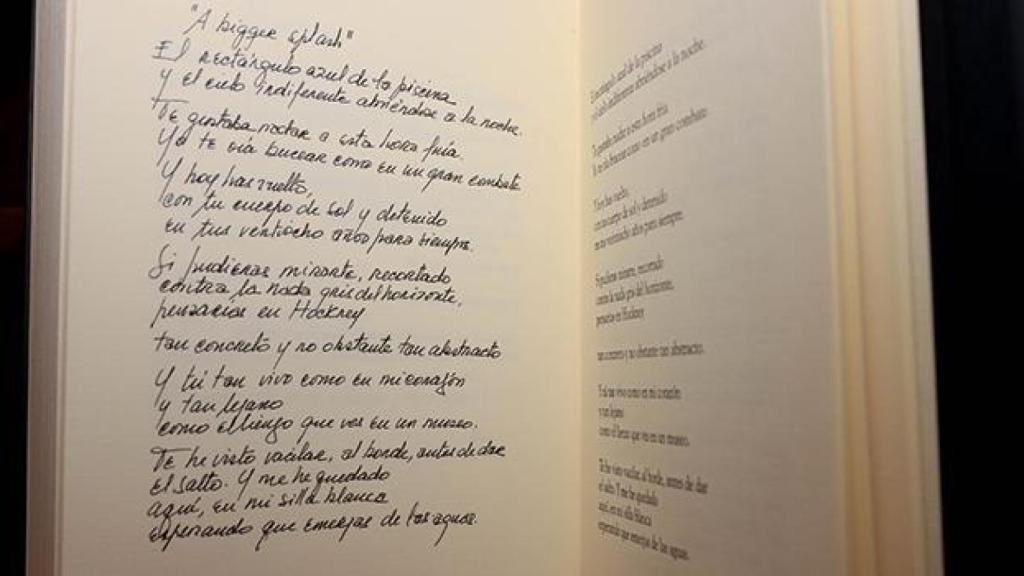 "A bigger splash"
El rectángulo azul de la piscina
y el cielo indiferente abriéndose a la noche.
Te gustaba nadar a esta hora fría.
Yo te veía bucear como en un gran combate
Y hoy has vuelto,
con tu cuerpo de sol y detenido
en tus veintiocho años para siempre.
Si pudieras mirarte, recortado
contra la nada gris del horizonte,
pensarías en Hockney
tan concreto y no obstante tan abstracto
Y tú tan vivo como en mi corazón
y tan lejano
como el lienzo que ves en un museo.
Te he visto vacilar, al borde, antes de dar
el salto. Y me he quedado
aquí, en mi silla blanca
esperando que emerjas de las aguas.
El rectángulo azul de la piscina
y el cielo indiferente abriéndose a la noche.
Te gustaba nadar a esta hora fría.
Yo te veía bucear como en un gran combate
Y hoy has vuelto,
con tu cuerpo de sol y detenido
en tus veintiocho años para siempre.
Si pudieras mirarte, recortado
contra la nada gris del horizonte,
pensarías en Hockney
tan concreto y no obstante tan abstracto.
Y tú tan vivo como en mi corazón
y tan lejano
como el lienzo que ves en un museo.
Te he visto vacilar, al borde, antes de dar
el salto. Y me he quedado
aquí, en mi silla blanca
esperando que emerjas de las aguas.